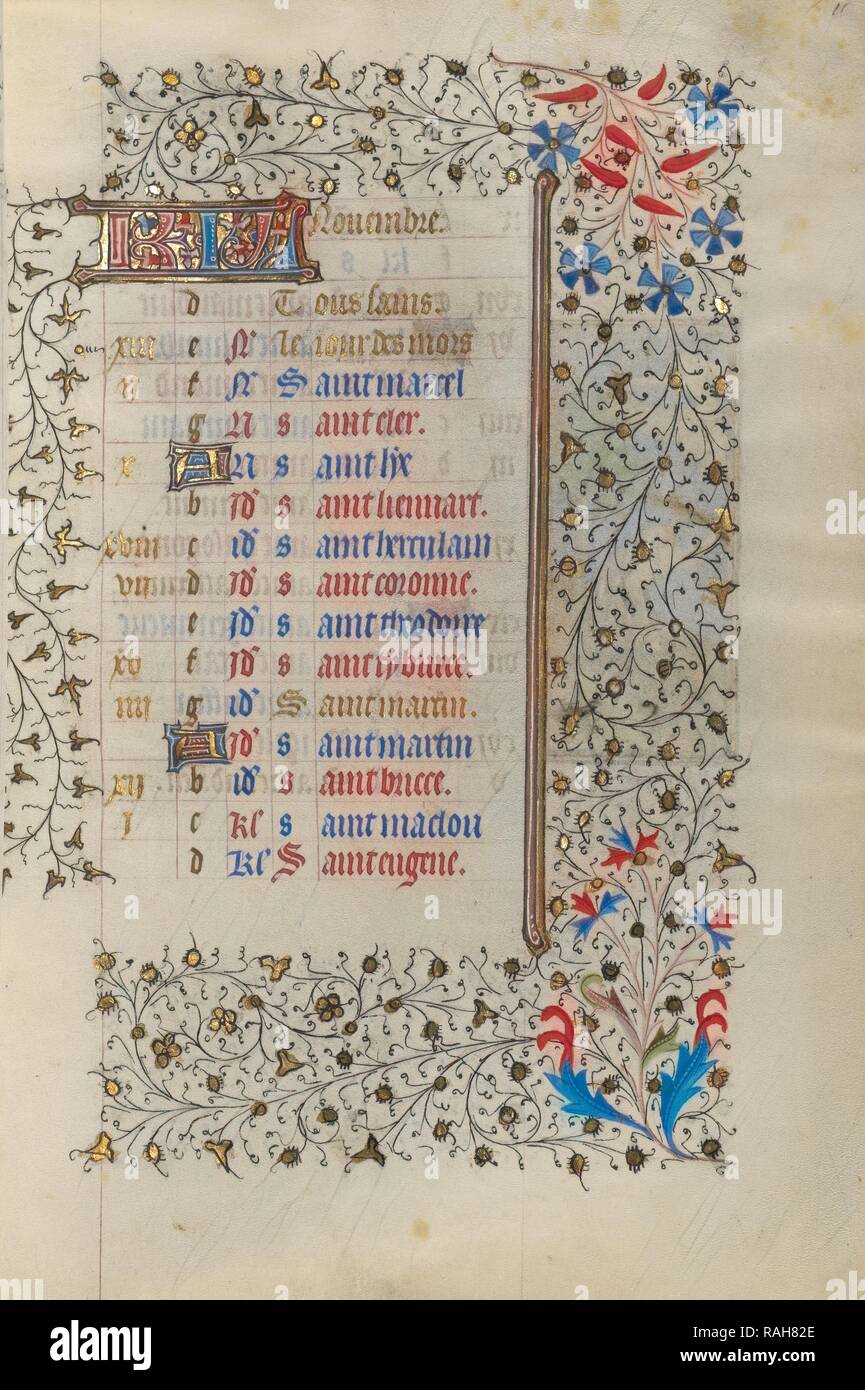 KL Nouembre.
d Tous sains.
xiii e N le iour des mors
ii f N Saint marcel
g N saint cler.
x A N saint lix
b id' saint liennart.
xviii c id' saint herculain
vii d id' saint coronne.
e id' saint theodore
xv f id' saint
iiii g id' Saint martin.
A id' saint martin
xii b id' saint bricce.
i c kl' saint maclou
d kl' Saint eugene.
alamy
Image ID: RAH82E
www.alamy.com